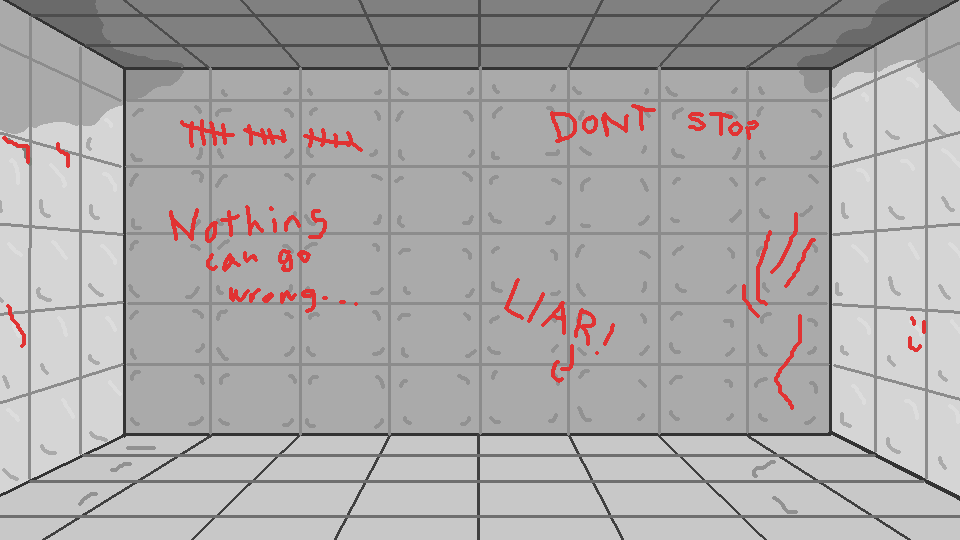 DONT STOP
Nothing
can go
wrong...
LIAR!